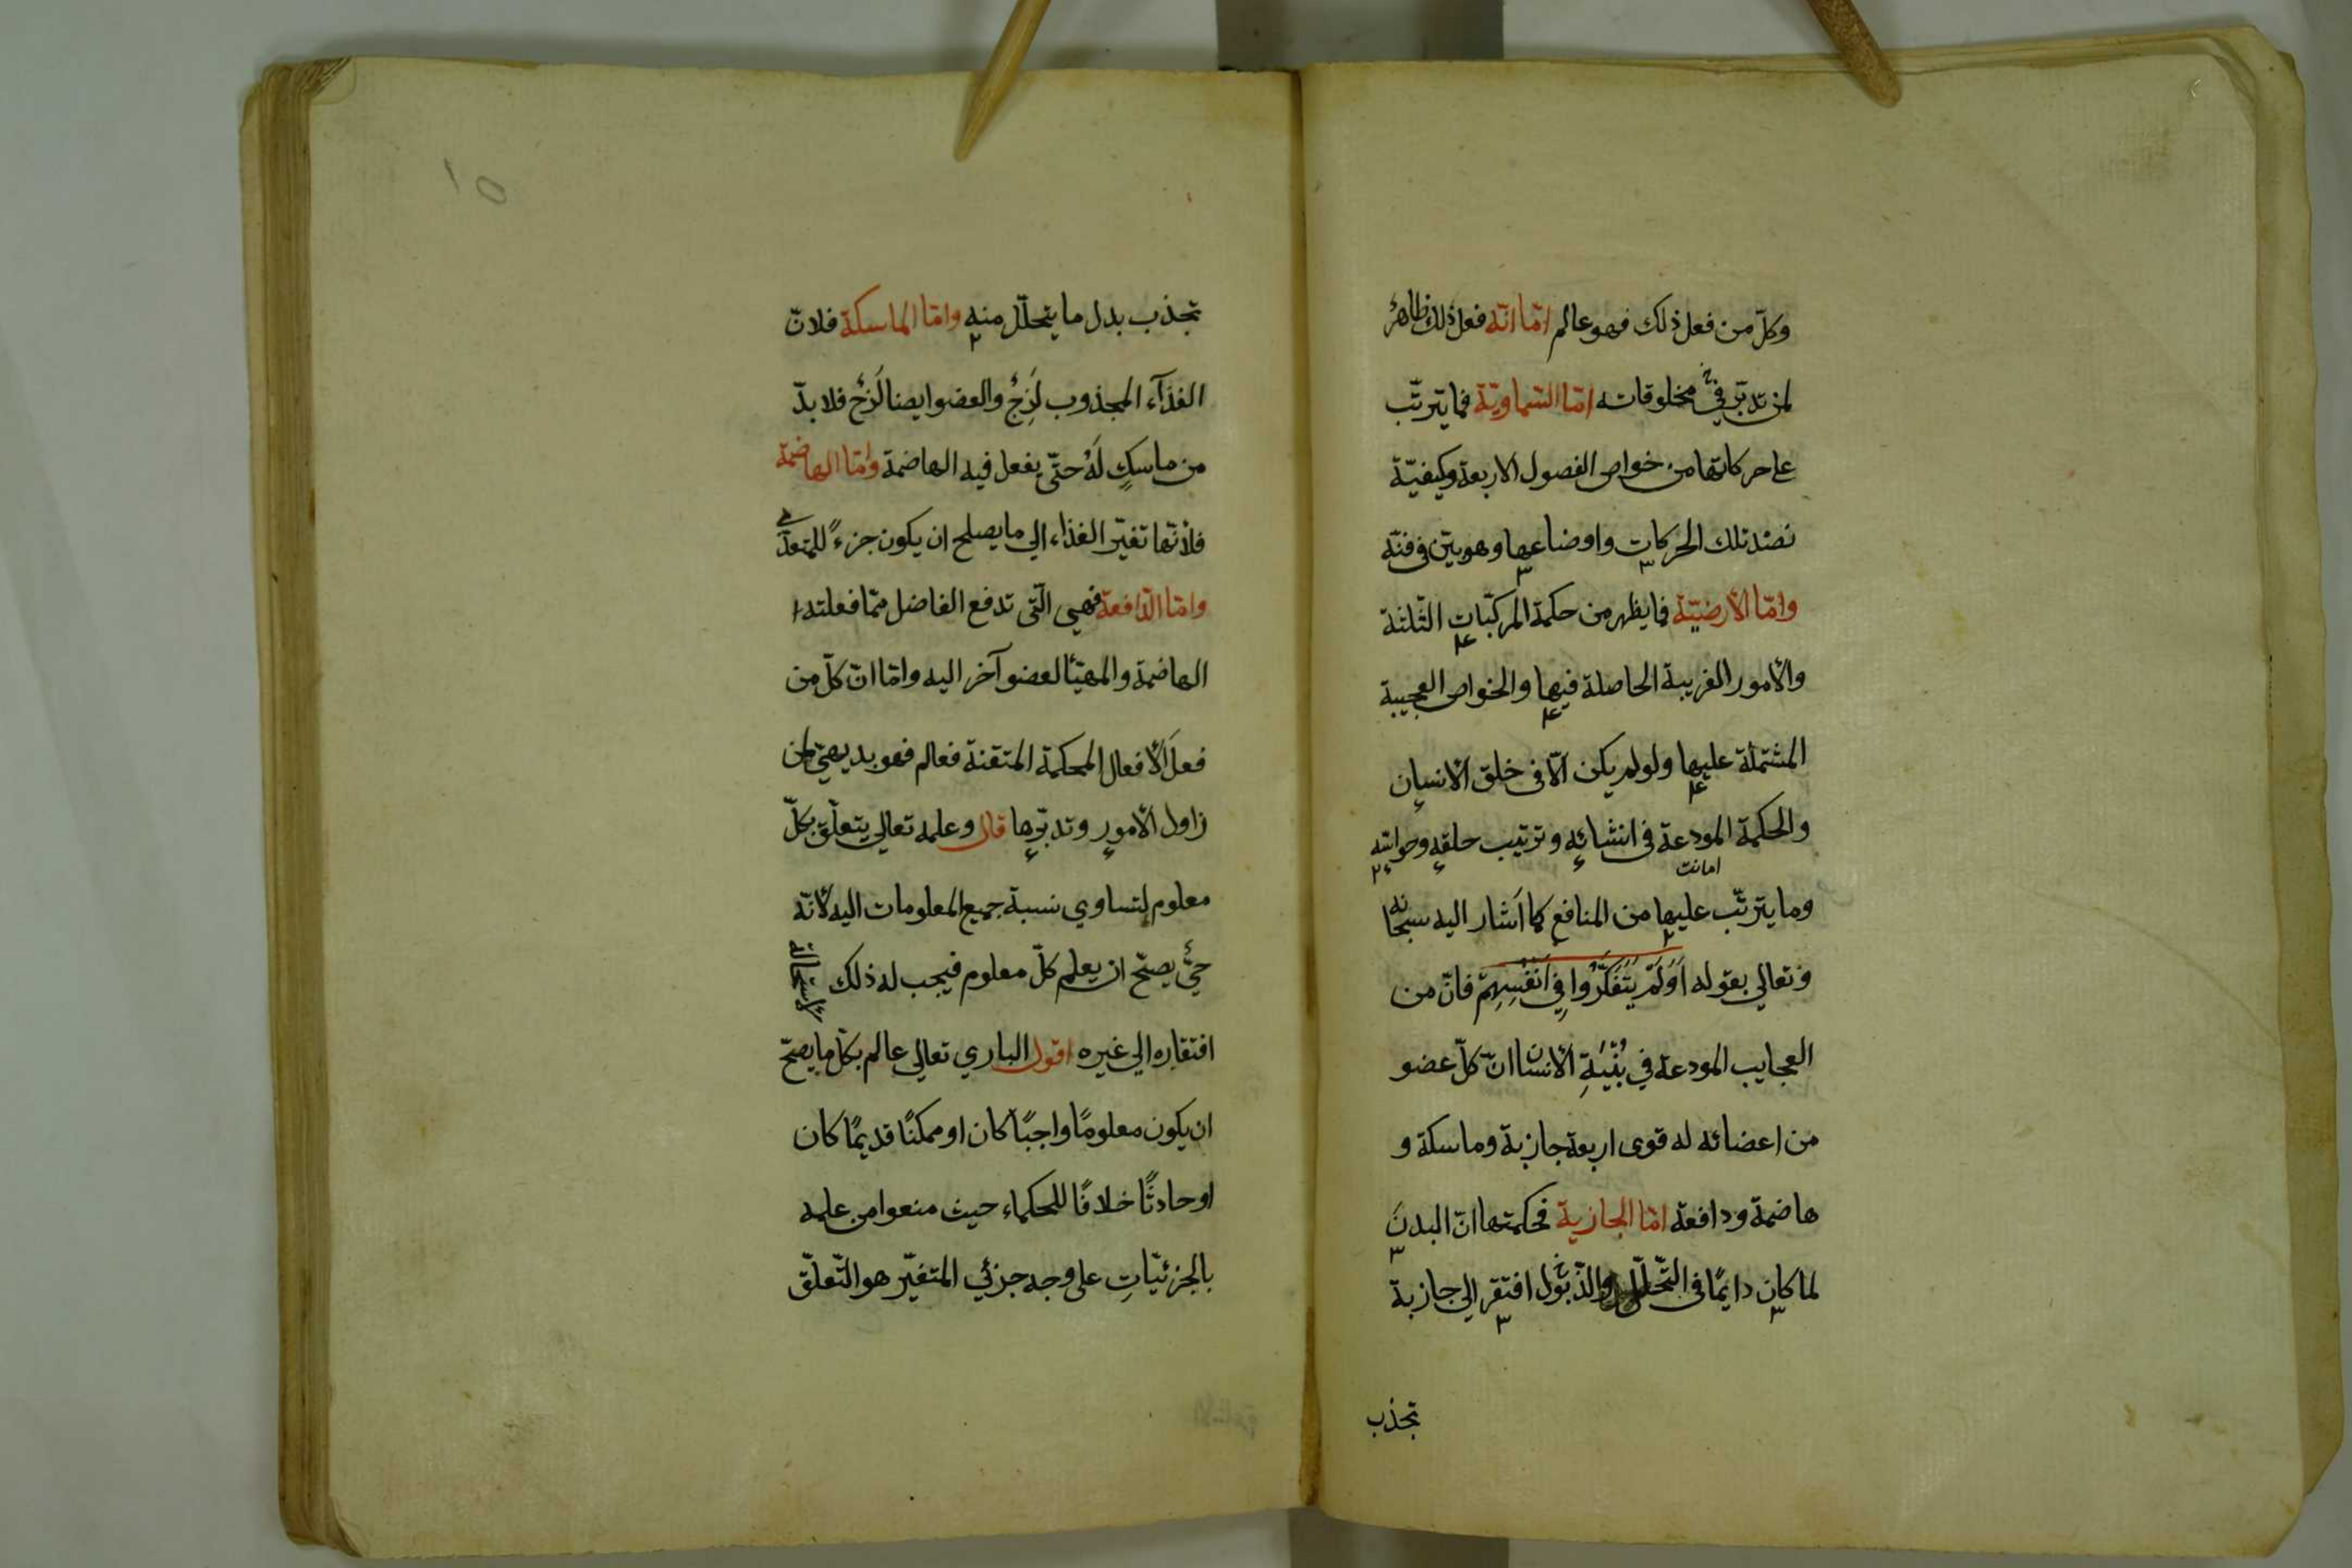 وكلّ من فعل ذلك فهو عالم امّا انّه فعل ذلك ظاهرٌ
لمن تدبّر في مخلوقاته امّا السّماويّة فما يترتّب
على حركاتها من خواص الفصول الاربعة وكيفيّة
نضد تلك الحركات واوضاعها وهو بيّن في فنّه
وامّا الأرضيّة فما يظهر من حكمة المركّبات الثّلثة
والأمور الغريبة الحاصلة فيها والخواص العجيبة
المشتملة عليها ولو لم يكن الّا في خلق الأنسان
والحكمة المودعة في انشائه وترتيب خلقه وحواسّه
امانت
وما يترتّب عليها من المنافع كما اَشار اليه سبحانه
وتعالي بقوله اَوَلَمْ يَتَفَكَّرُوا فِي اَنْفُسِهِمْ فانّ من
العجايب المودعة في بُنْيَةِ الأنسان انّ كلّ عضو
من اعضائه له قوى اربعة جازبة وماسكة و
هاضمة ودافعة امّا الجازبة فحكمتها انّ البدنَ
لما كان دايمًا في التّحلّل والذّبول افتقر الي جازبة
تجذب
١٥
تجذب بدل ما يتحلّل منه وامّا الماسكة فلانّ
الغذآء المجذوب لَزِجٌ والعضو ايضا لَزِجٌ فلا بدّ
من ماسكٍ لَهُ حتّى يفعل فيه الهاضمة وامّا الهاضمة
فلأنّها تغيّر الغذاء الي ما يصلح ان يكون جزءً للمتغذّي
وامّا الدّافعة فهي الّتي تدفع الفاضل ممّا فعلته
الهاضمة والمهيّأ لعضو آخر اليه وامّا انّ كلّ من
فعلَ الأفعال المحكمة المتقنة فعالم فهو بديهيّ لمن
زاول الأمور وتدبّرها قال وعلمه تعالي يتعلّق بكلّ
معلوم لتساوي نسبة جميع المعلومات اليه لأنّه
حيٌّ يصحّ ان يعلم كلّ معلوم فيجب له ذلك لاستحالة
افتقاره الي غيره اقول الباري تعالي عالم بكلّ ما يصحّ
ان يكون معلومًا واجبًا كان او ممكنًا قديمًا كان
او حادثًا خلافًا للحكماء حيث منعوا من علمه
بالجزئيّاتِ على وجه جزئي المتغيّر هو التّعلّق